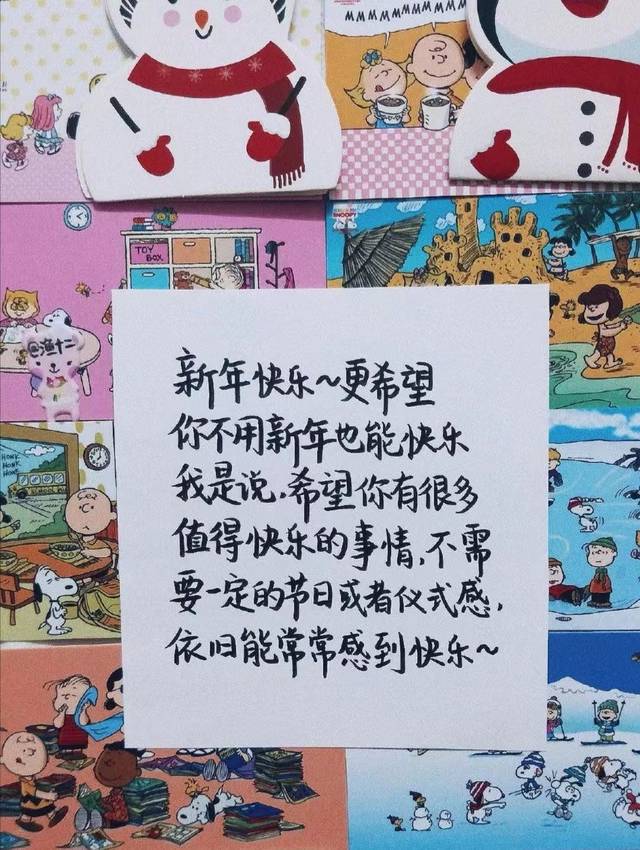 MMMMMMMMMMM
SNOOPY
TOY
BOX
@渔十二
HONK
HONK
HONK
新年快乐~更希望
你不用新年也能快乐
我是说,希望你有很多
值得快乐的事情,不需
要一定的节日或者仪式感,
依旧能常常感到快乐~